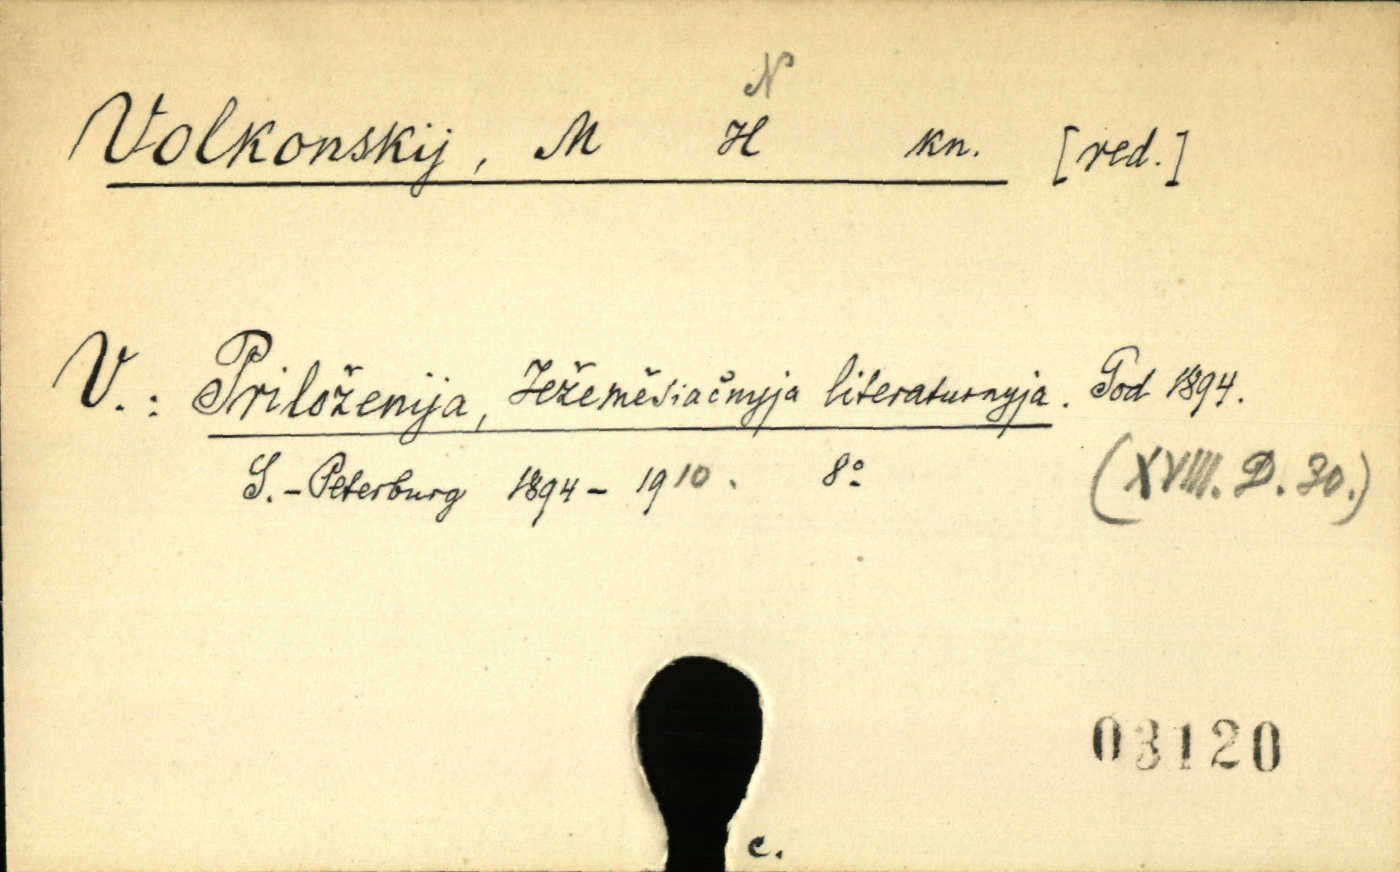 N
Volkonskij, M H kn. [red.]
V.: Priloženija, Ježeměsiačnyja literaturnyja. God 1894.
S.-Peterburg 1894-1910. 8°
(XVIII. D. 30.)
03120
c.